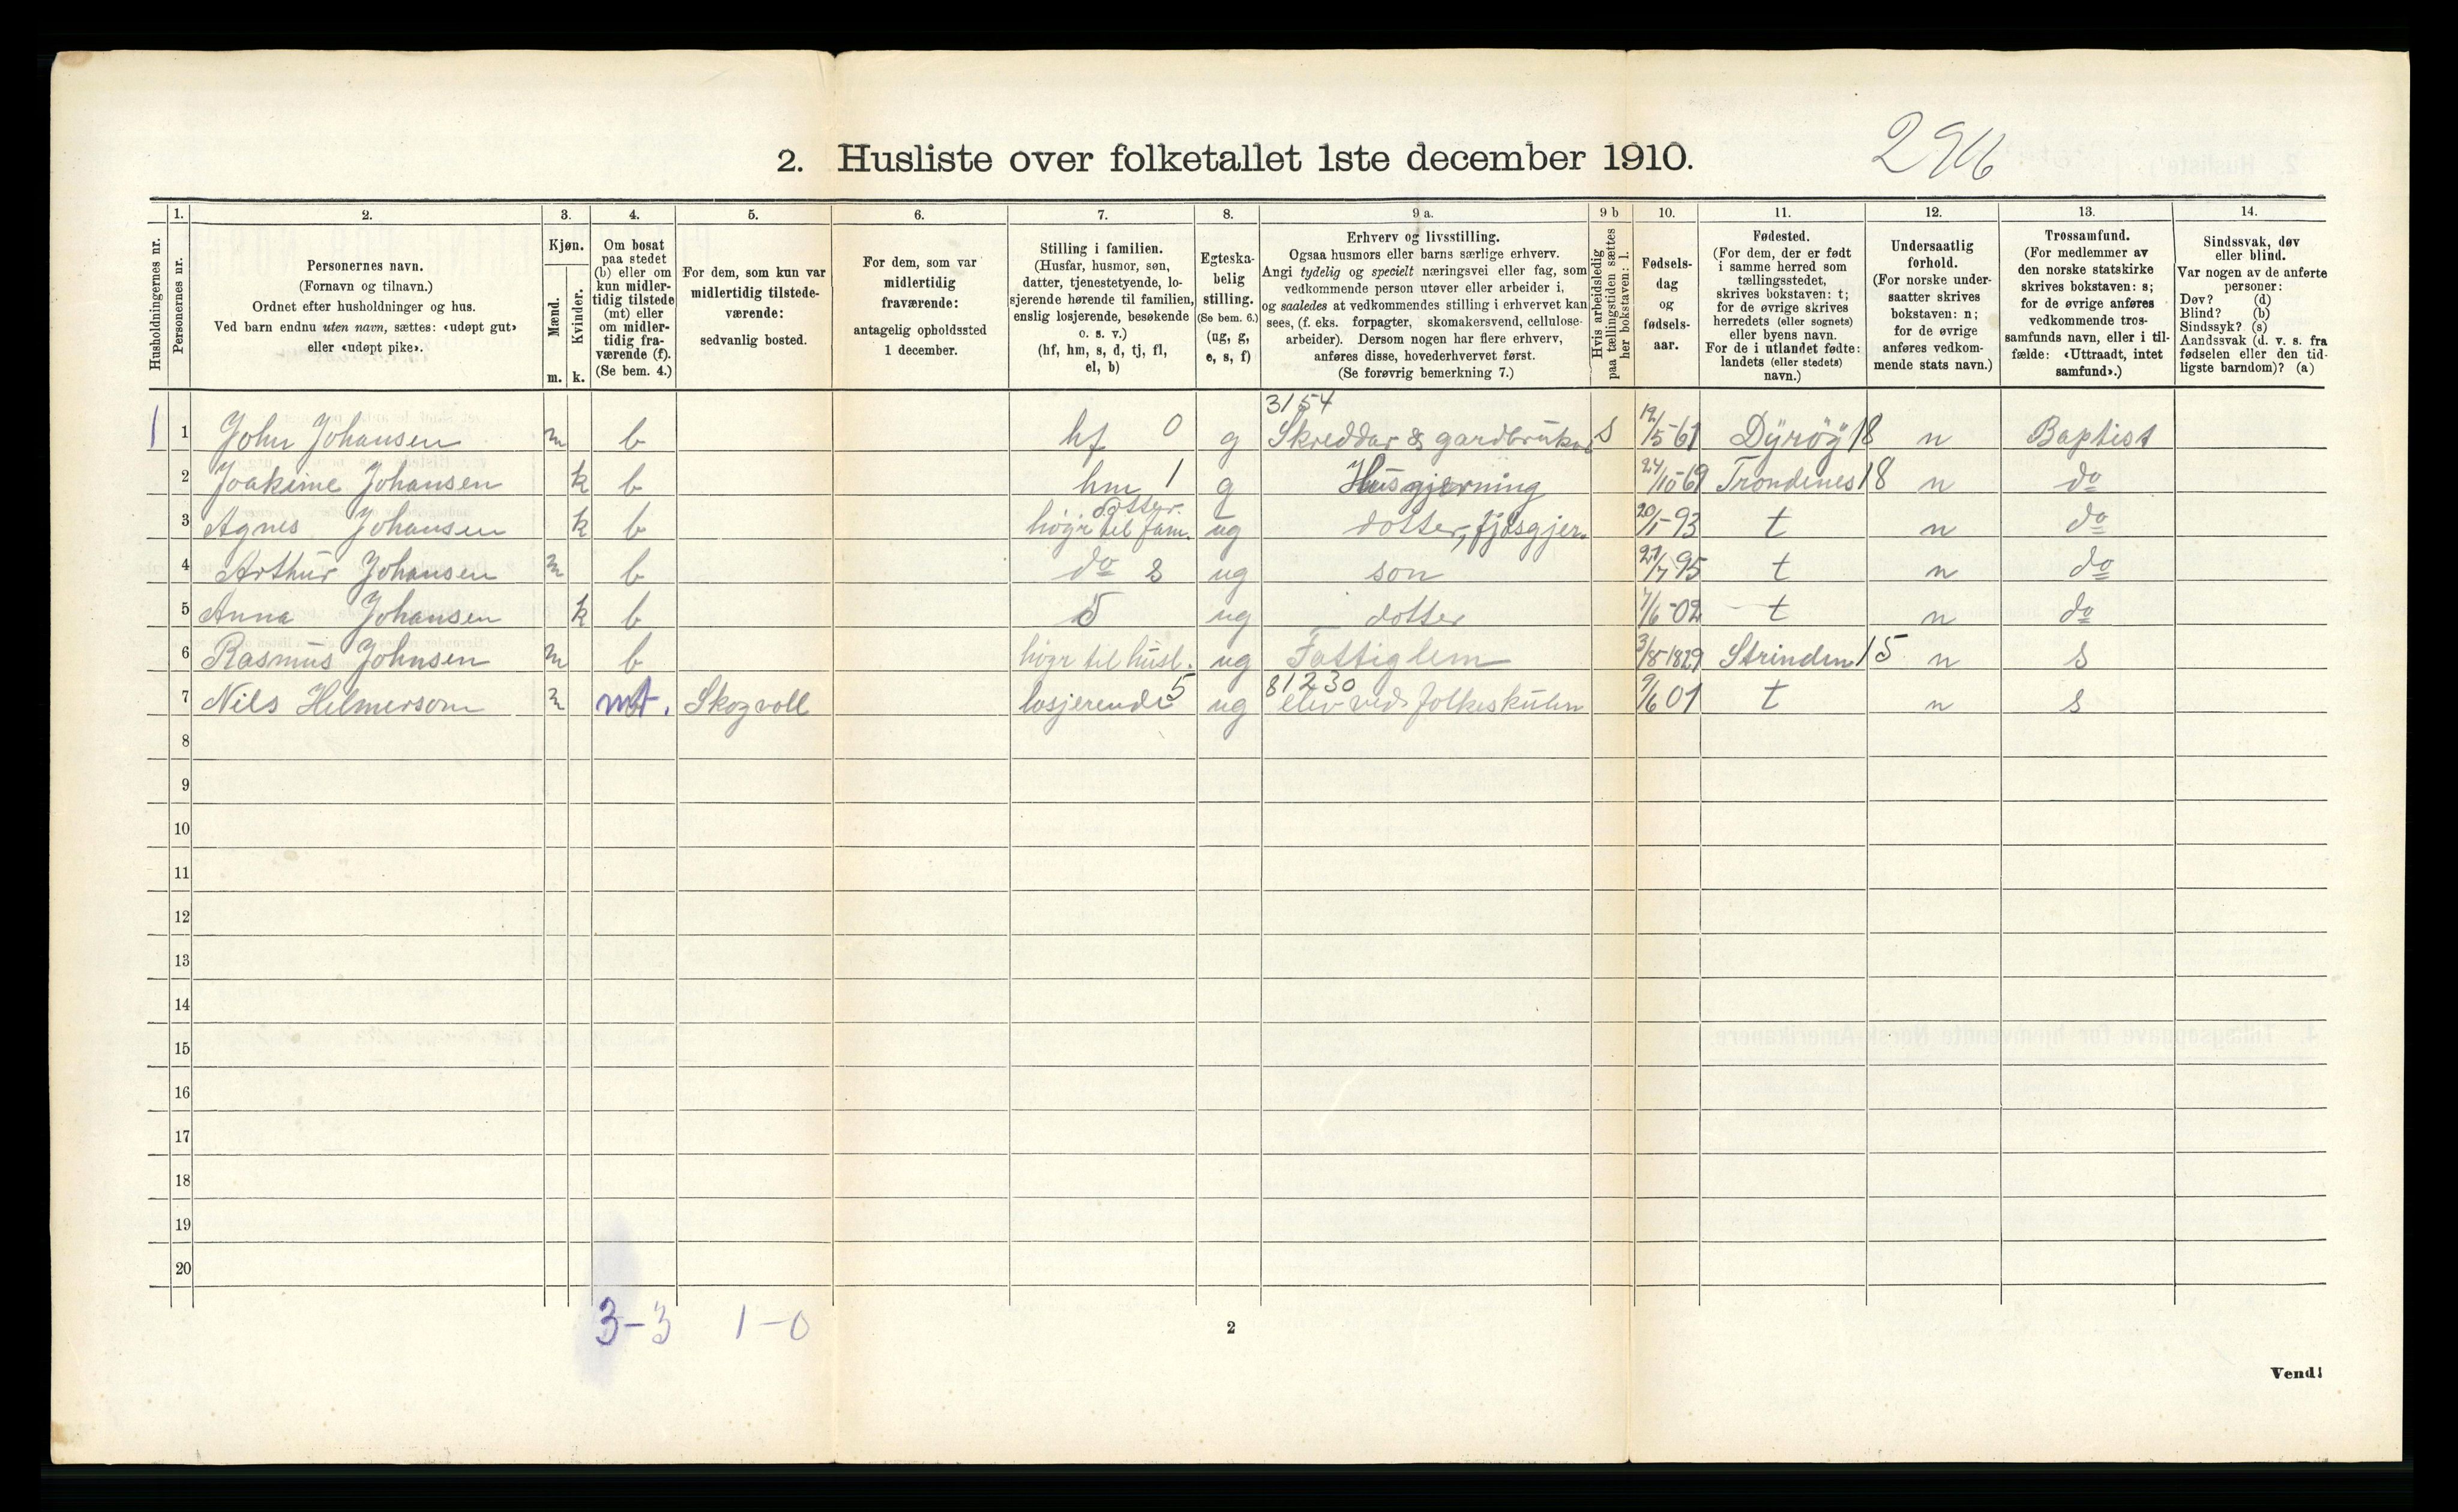 2. Husliste over folketallet 1ste december 1910.
Husholdningernes nr.
1.
Personernes nr.
2.
Personernes navn.
(Fornavn og tilnavn.)
Ordnet efter husholdninger og hus.
Ved barn endnu uten navn, sættes: «udøpt gut»
eller «udøpt pike».
3.
Kjøn.
Mænd.
Kvinder.
m. k.
4.
Om bosat
paa stedet
(b) eller om
kun midler-
tidig tilstede
(mt) eller
om midler-
tidig fra-
værende (f).
(Se bem. 4.)
5.
For dem, som kun var
midlertidig tilstede-
værende:
sedvanlig bosted.
6.
For dem, som var
midlertidig
fraværende:
antagelig opholdssted
1 december.
7.
Stilling i familien.
(Husfar, husmor, søn,
datter, tjenestetyende, lo-
sjerende hørende til familien,
enslig losjerende, besøkende
o. s. v.)
(hf, hm, s, d, tj, fl,
el, b)
8.
Egteska-
belig
stilling.
(Se bem. 6.)
(ug, g,
e, s, f)
9 a.
Erhverv og livsstilling.
Ogsaa husmors eller barns særlige erhverv.
Angi tydelig og specielt næringsvei eller fag, som
vedkommende person utøver eller arbeider i,
og saaledes at vedkommendes stilling i erhvervet kan
sees, (f. eks. forpagter, skomakersvend, cellulose-
arbeider). Dersom nogen har flere erhverv,
anføres disse, hovederhvervet først.
(Se forøvrig bemerkning 7.)
9 b
Hvis arbeidsledig
paa tællingstiden sættes
her bokstaven: l.
10.
Fødsels-
dag
og
fødsels-
aar.
11.
Fødested.
(For dem, der er født
i samme herred som
tællingsstedet,
skrives bokstaven: t;
for de øvrige skrives
herredets (eller sognets)
eller byens navn.
For de i utlandet fødte:
landets (eller stedets)
navn.)
12.
Undersaatlig
forhold.
(For norske under-
saatter skrives
bokstaven: n;
for de øvrige
anføres vedkom-
mende stats navn.)
13.
Trossamfund.
(For medlemmer av
den norske statskirke
skrives bokstaven: s;
for de øvrige anføres
vedkommende tros-
samfunds navn, eller i til-
fælde: «Uttraadt, intet
samfund».)
14.
Sindssvak, døv
eller blind.
Var nogen av de anførte
personer:
Døv? (d)
Blind? (b)
Sindssyk? (s)
Aandssvak (d. v. s. fra
fødselen eller den tid-
ligste barndom)? (a)
3154
1 1 John Johansen m b hf 0 g Skreddar & gardbrukar s 12/5-61 Dyrøy 18 n Baptist
2 Joakime Johansen k b hm 1 g Husgjerning 24/10-69 Trondenes 18 n do
dotter.
3 Agnes Johansen k b høyr til fam. ug dotter, fjøsgjer. 20/1-93 t n do
4 Arthur Johansen m b do s ug son 21/7-95 t n do
5 Anna Johansen k b ug dotter 7/6-02 t n do
6 Rasmus Johnsen m b høyr til husl. ug Fattiglem 3/8-1829 Strinden 15 n s
81230
7 Nils Helmersom m mt. Skogvoll losjerende 5 ug elev ved folkeskulen 9/6 01 t n s
8
9
10
11
12
13
14
15
16
17
18
19
20
3-3 1-0
2
Vend!